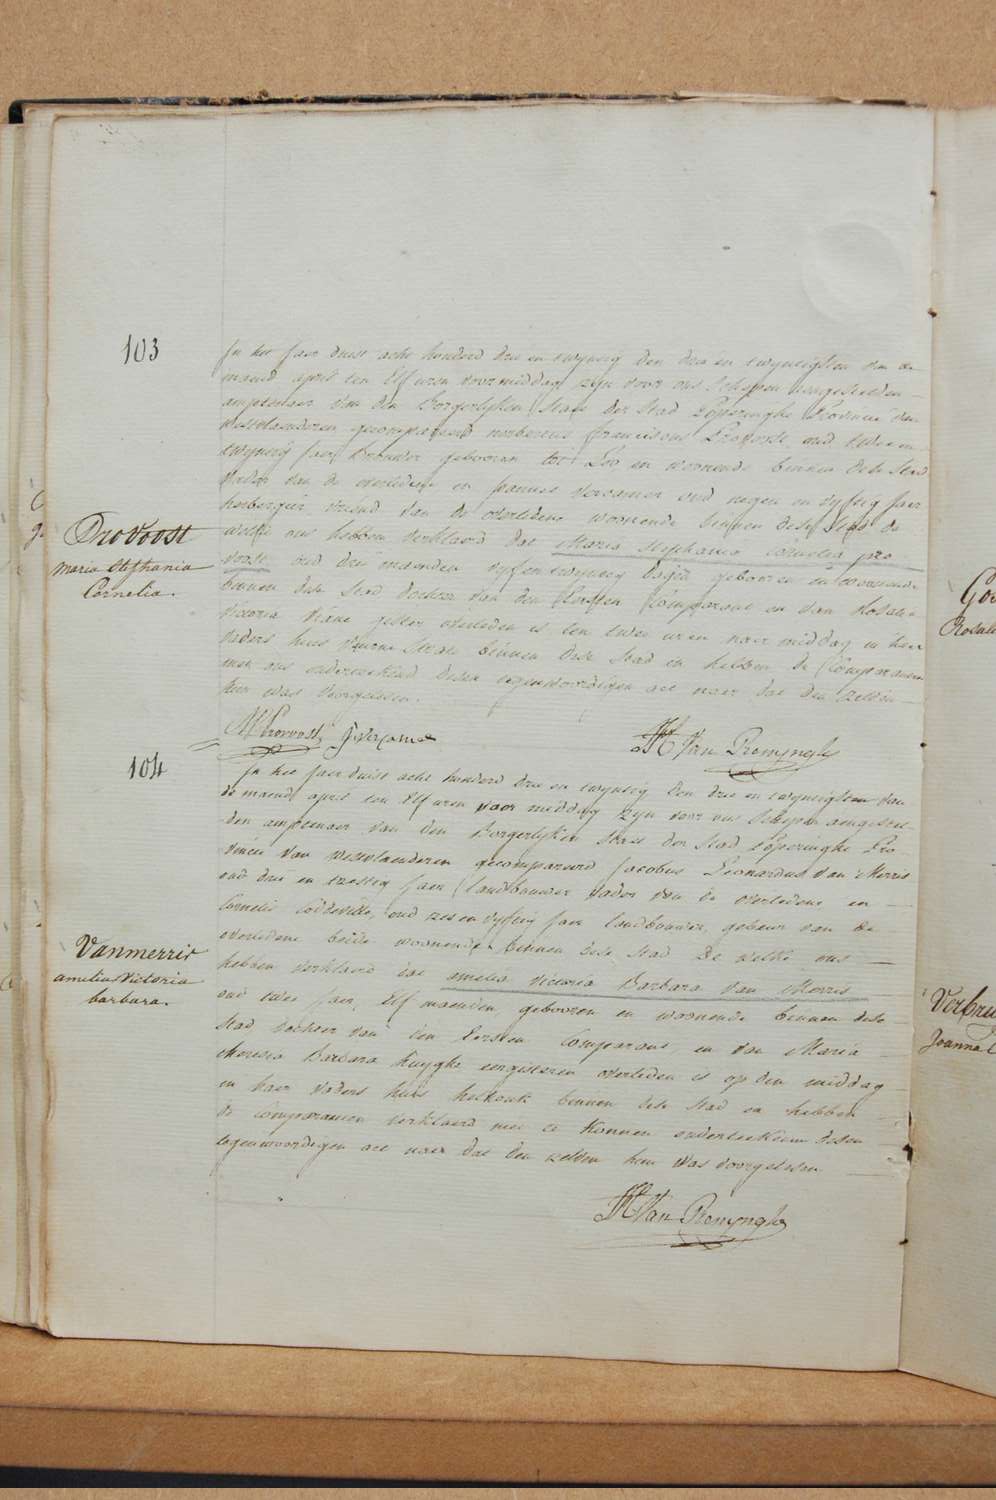 103
Provoost
maria Stephania
Cornelia.
In het Jaer duist acht honderd drie en twyntig den drie en twyntigsten van de
maend april ten Elf uren voormiddag zyn voor ons Schepen aengestelden
amptenaer van den Borgerlyken Staet der Stad Poperinghe Provincie van
Westvlanderen gecompareerd norbertus franciscus Provoost oud twee en
twyntig Jaer Brouwer gebooren tot Loo en woonende binnen dese Stad
vader van de overledene en Joannes Vercamer oud negen en vyftig Jaer
herbergier vriend van de overledene woonende binnen dese Stad de
welke ons hebben verklaerd dat Maria Stephania Cornelia pro-
voost oud drie maenden vyf en twyntig dagen gebooren en woonende
binnen dese Stad dochter van den Eersten Comparant en van Rosalie
Victoria gister overleden is ten twee uren naer middag in haer
vaders huis veurne Straet binnen dese Stad en hebben de Comparanten
met ons onderteekend desen tegenwoordigen act naer dat den zelven
hun was voorgelesen.
N Provoost J. Vercamer
H Van Renynghe
104
Vanmerris
amelia Victoria
barbara.
In het Jaer duist acht honderd drie en twyntig den drie en twyntigsten van
de maend april ten Elf uren voor middag zyn voor ons Schepen aengestel-
den amptenaer van den Borgerlyken Staet der Stad Poperinghe Pro-
vincie van Westvlaenderen gecompareerd Jacobus Leonardus Van Merris
oud drie en zestig Jaer Landbouwer vader van de overledene en
Cornelis oud zes en vyftig Jaer landbouwer gebeur van de
overledene beide woonende binnen dese Stad De welke ons
hebben verklaerd dat amelia victoria Barbara Van Merris
oud twee Jaer, Elf maenden gebooren en woonende binnen dese
Stad dochter van den Eersten Comparant en van Maria
theresia Barbara eergisteren overleden is op den middag
in haer vaders huis binnen dese Stad en hebben
de Comparanten verklaerd niet te konnen onderteekenen desen
tegenwoordigen act naer dat den zelven hun was voorgelesen.
H Van Renynghe
Rosali
Verbru
Joanna C